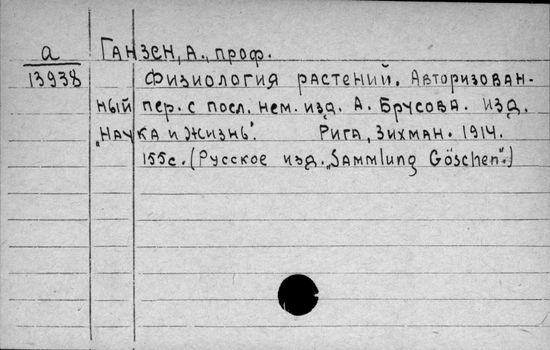 а
13938
Ганзен, А., проф.
Физиология растений. Авторизован-
ный пер. с посл. нем. изд. А. Брусова. изд.
„Наука и Жизнь“. Рига, Зихман. 1914.
155с. (Русское изд. „Sammlung Göschen“.)